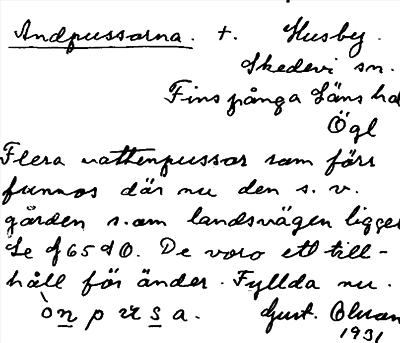 Andpussarna. t. Husby.
Skedevi sn.
Finspånga Läns hd
Ögl
Flera vattenpussar som förr
funnos där nu den s. v.
gården s.om landsvägen ligger
Se f 65 d O. De voro ett till-
håll för änder. Fyllda nu.
ònpusa. Gust. Olson
1931